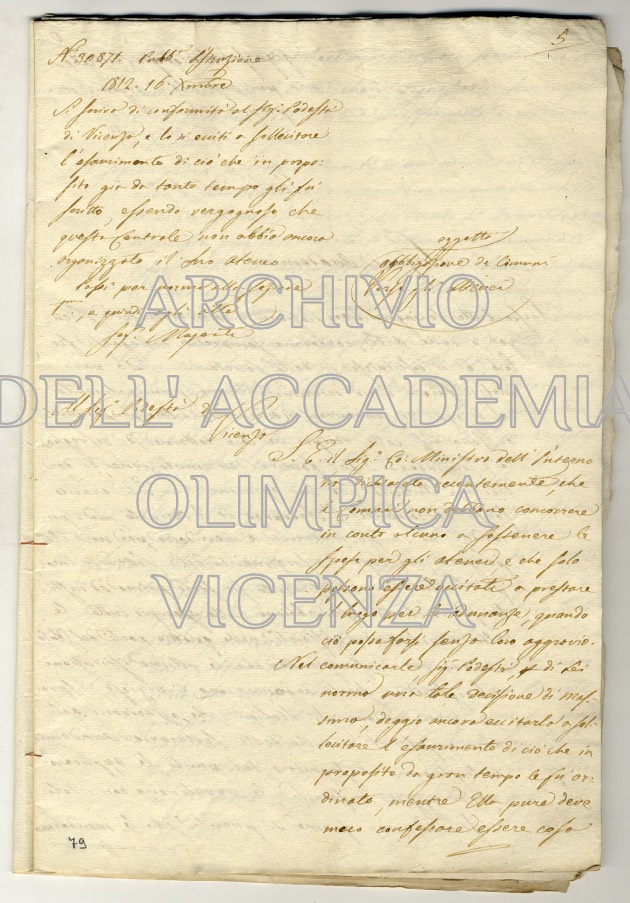 5
N.° 30871. Pubb.ª Istruzione
1812. 16. Xmbre
Si scriva di conformità al Sig.r Podestà
di Vicenza, e lo si ecciti a sollecitare
l'esaurimento di ciò che in propo:
sito già da tanto tempo gli fu
scritto, essendo vergognoso che
questa Centrale non abbia ancora
organizzato il suo Ateneo
Passi per norma alla Sezione
e quindi agli atti
oggetto
obbligazione de Comuni
verso gli Atenei
Al Sig.r Podestà di
Vicenza
S. E. il Sig.r Co: Ministro dell'Interno
ha dichiarato recentemente, che
i Comuni non debbano concorrere
in conto alcuno a sostenere le
spese per gli Atenei e che solo
possono essere eccitati a prestare
il luogo per le adunanze, quando
ciò possa farsi senza loro aggravio.
Nel comunicarle Sig.r Podestà, di Lei
norma una tale decisione di mas
sima, deggio ancora eccitarla a sol
lecitare l'esaurimento di ciò che in
proposito da gran tempo le fu or
dinato, mentre Ella pure deve
meco confessare essere cosa
79
ARCHIVIO
DELL'ACCADEMIA
OLIMPICA
VICENZA